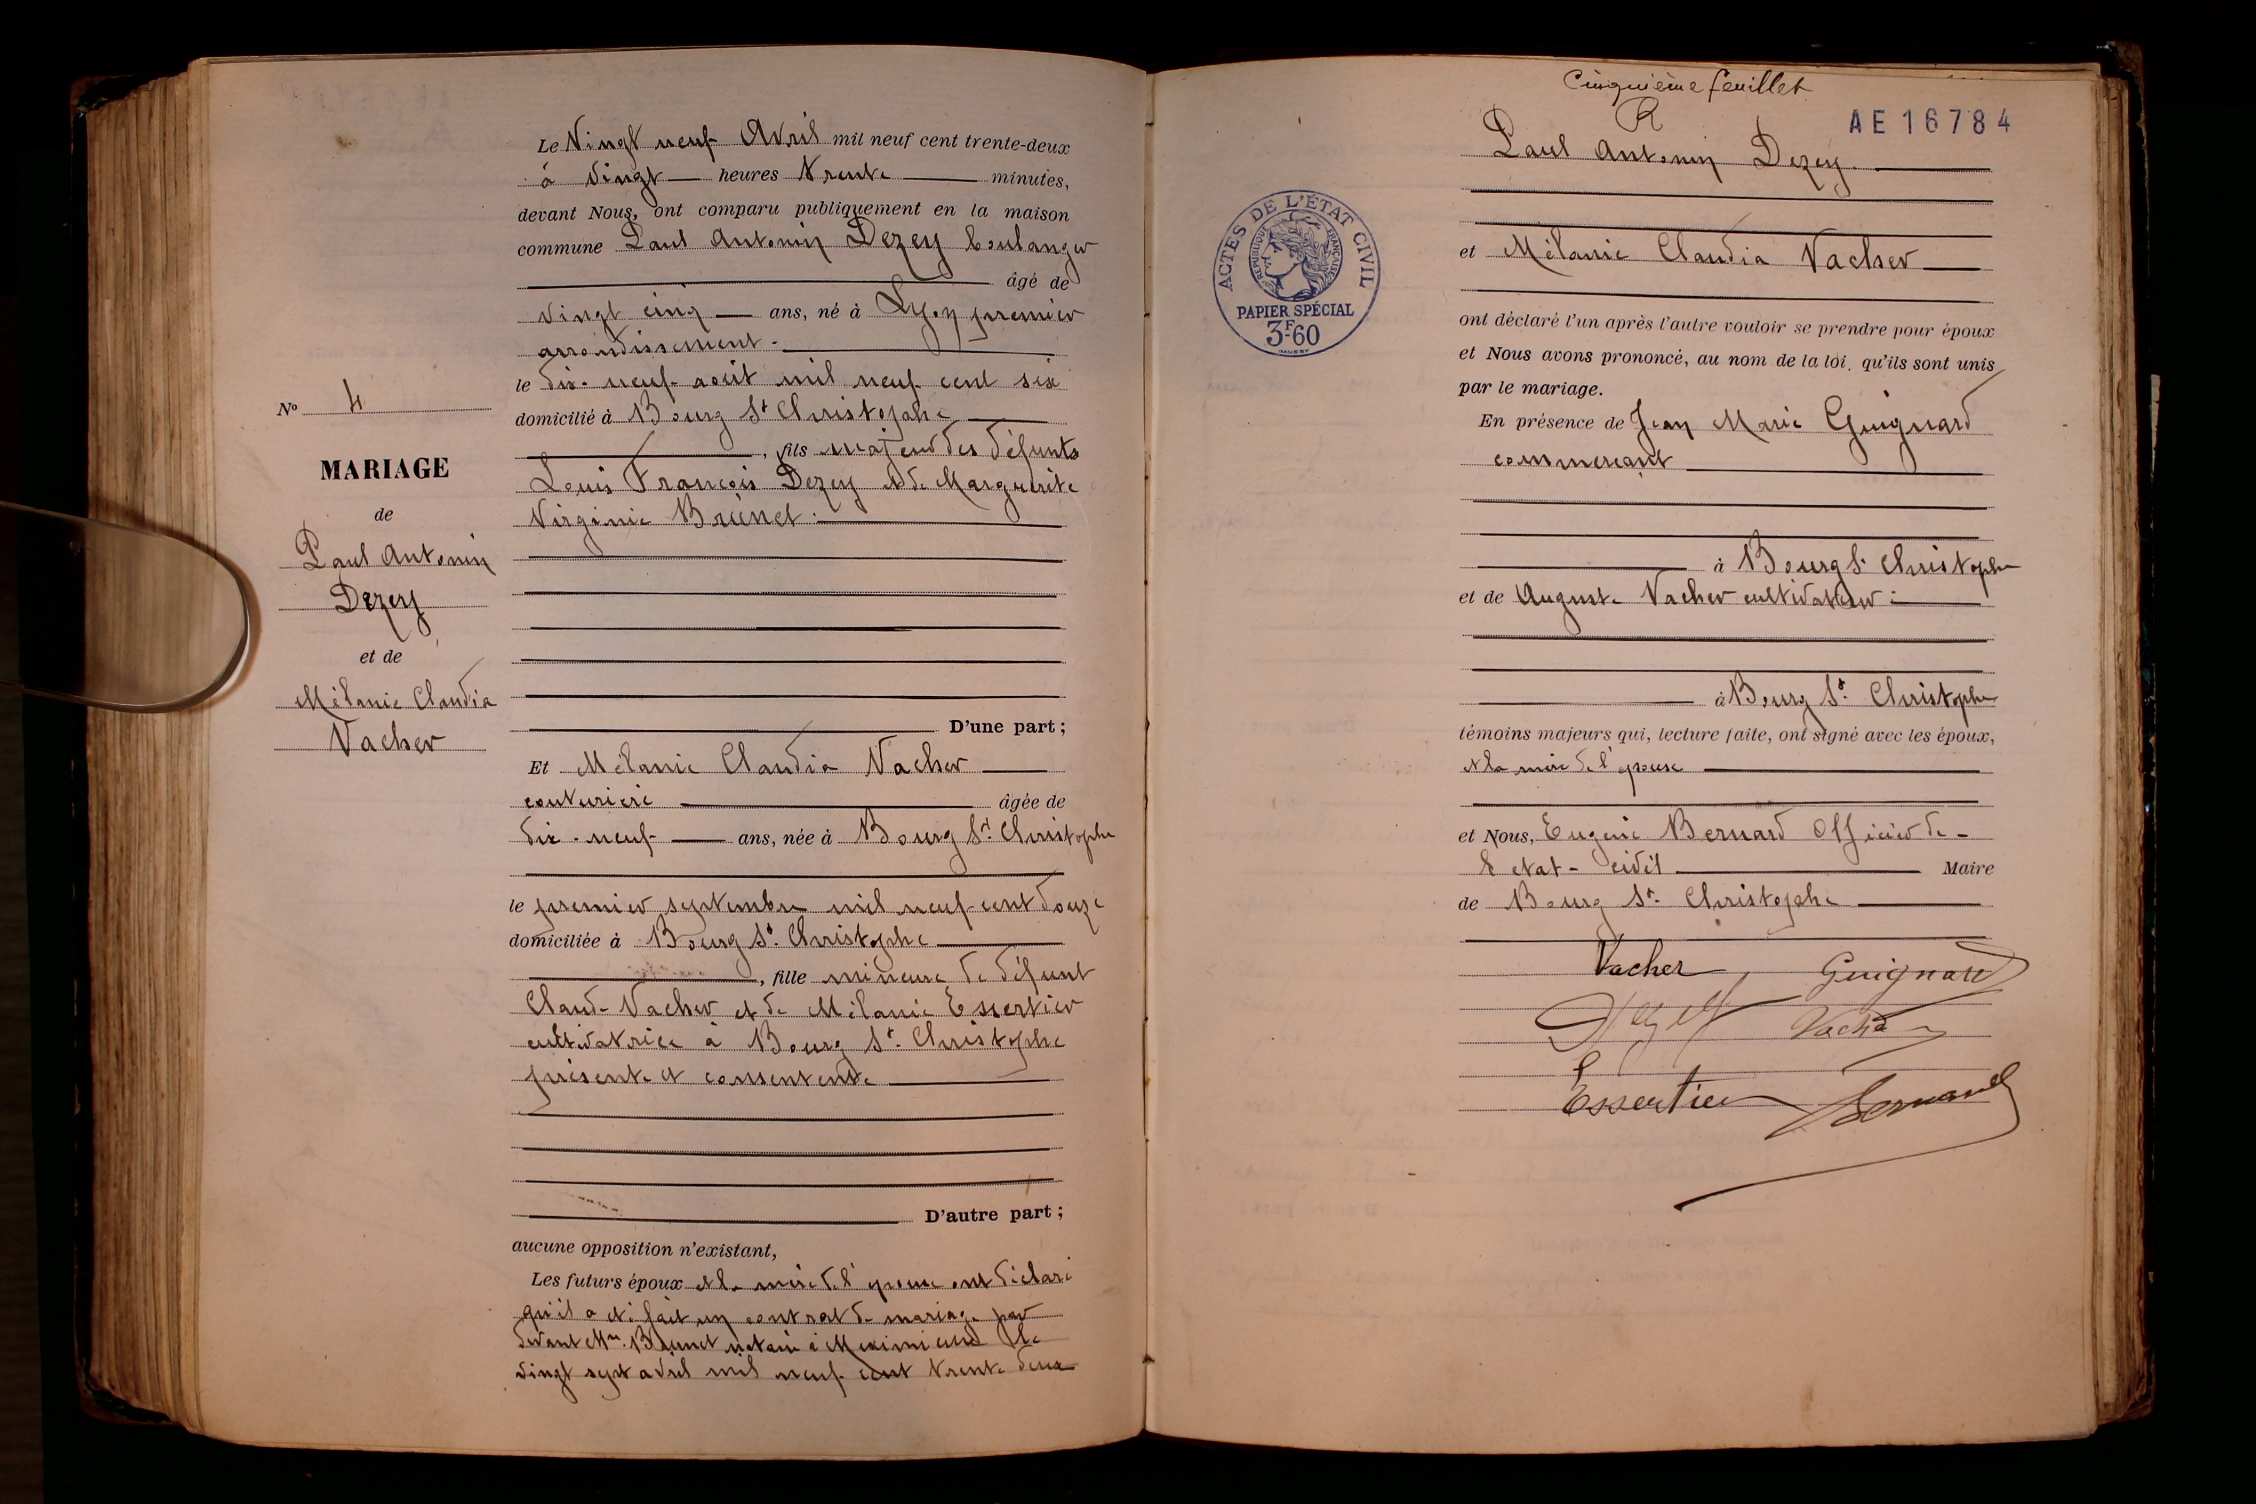 Le Vingt neuf Avril mil neuf cent trente-deux
à vingt heures trente minutes,
devant Nous, ont comparu publiquement en la maison
commune Paul Antonin Dezey boulanger
âgé de
vingt cinq ans, né à Lyon premier
arrondissement.
le dix-neuf août mil neuf cent six
domicilié à Bourg St Christophe
, fils majeur des défunts
Louis François Dezey et de Marguerite
Virginie Brunet.
D'une part;
No 4
MARIAGE
de
Paul Antonin
Dezey
et de
Mélanie Claudia
Vacher
Et Mélanie Claudia Vacher
couturière âgée de
dix-neuf ans, née à Bourg St. Christophe
le premier septembre mil neuf cent douze
domiciliée à Bourg St. Christophe
, fille mineure de défunt
Claude Vacher et de Mélanie Essertier
cultivatrice à Bourg St. Christophe
présente et consentente
D'autre part;
aucune opposition n'existant,
Les futurs époux et la mère de l'épouse ont déclaré
qu'il a été fait un contrat de mariage par
devant Me. Brunet notaire à Meximieux le
vingt sept avril mil neuf cent trente deux
Cinquième feuillet
R
AE 16784
Paul Antonin Dezey.
et Mélanie Claudia Vacher
ACTES DE L'ÉTAT CIVIL
RÉPUBLIQUE FRANÇAISE
PAPIER SPÉCIAL
3F.60
ont déclaré l'un après l'autre vouloir se prendre pour époux
et Nous avons prononcé, au nom de la loi, qu'ils sont unis
par le mariage.
En présence de Jean Marie Guignard
commerçant
à Bourg St Christophe
et de Auguste Vacher cultivateur
à Bourg St. Christophe
témoins majeurs qui, lecture faite, ont signé avec les époux,
et la mère de l'épouse
et Nous, Eugène Bernard Officier de
l'etat-civil Maire
de Bourg St. Christophe
Vacher Guignard
Dezey Vacher
Essertier Bernard